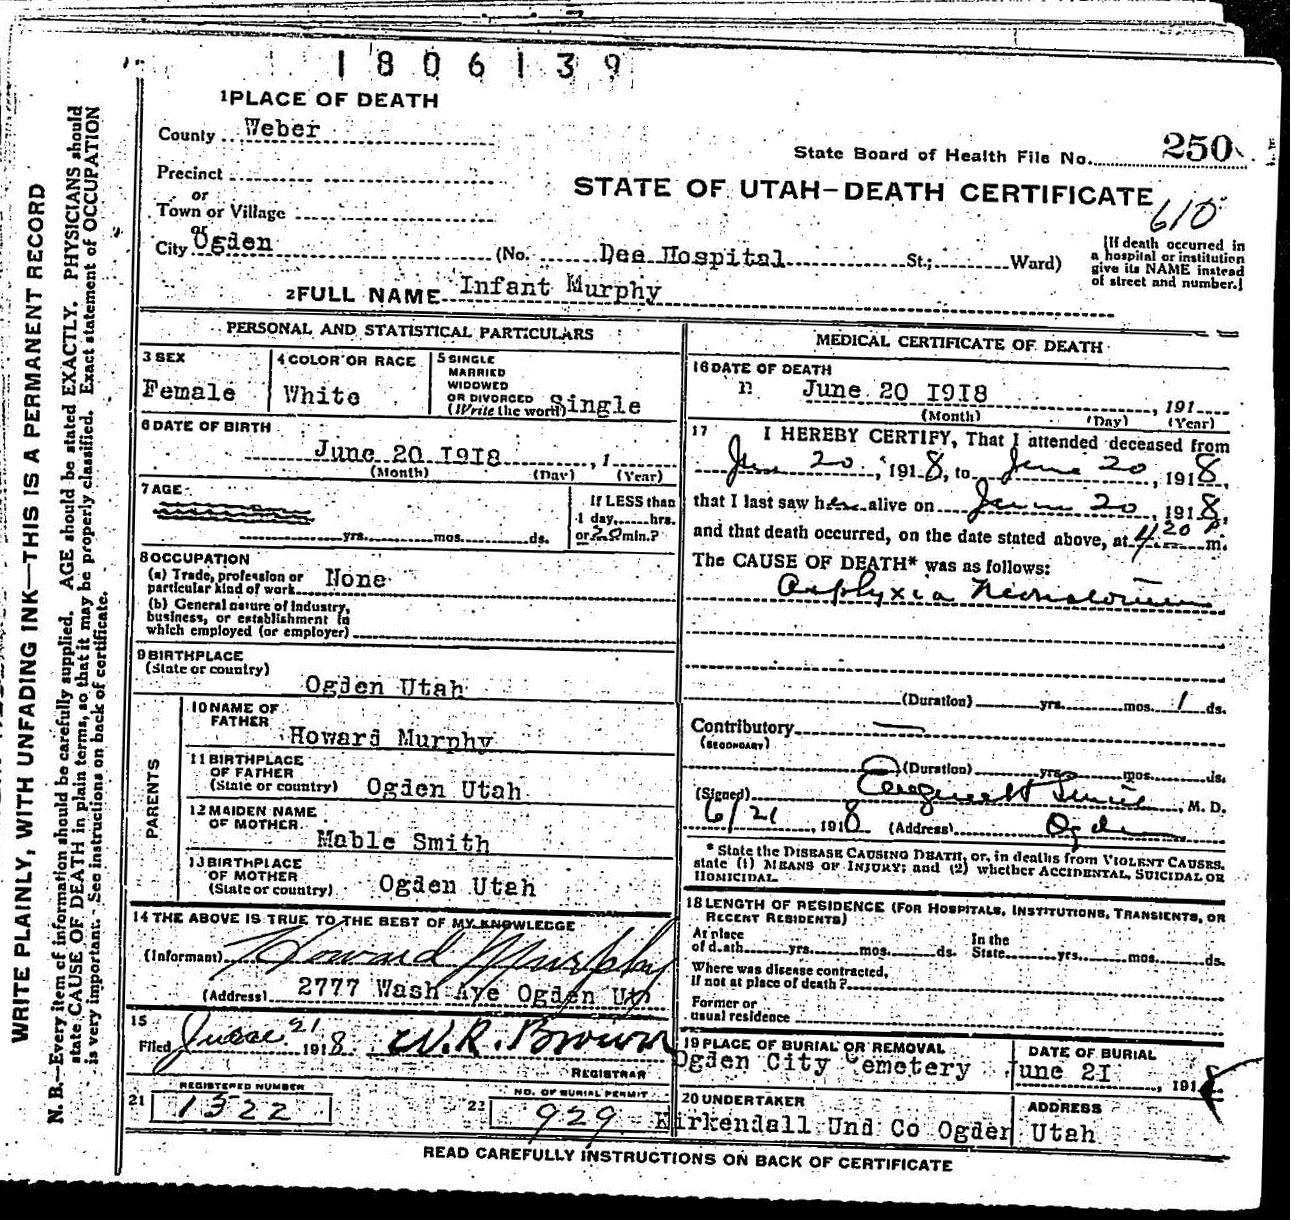 1806139
1 PLACE OF DEATH
County Weber
State Board of Health File No. 250
Precinct
or
STATE OF UTAH-DEATH CERTIFICATE
Town or Village
610
or
City Ogden (No. Dee Hospital St.; Ward)
[If death occurred in
a hospital or institution
give its NAME instead
of street and number.]
2 FULL NAME Infant Murphy
PERSONAL AND STATISTICAL PARTICULARS
3 SEX
Female
4 COLOR OR RACE
White
5 SINGLE
MARRIED
WIDOWED
OR DIVORCED
(Write the word) Single
6 DATE OF BIRTH
June 20 1918, 1
(Month) (Day) (Year)
7 AGE
yrs. mos. ds.
If LESS than
1 day, hrs.
or 20 min.?
8 OCCUPATION
(a) Trade, profession or
particular kind of work None
(b) General nature of Industry,
business, or establishment in
which employed (or employer)
9 BIRTHPLACE
(State or country)
Ogden Utah
PARENTS
10 NAME OF
FATHER
Howard Murphy
11 BIRTHPLACE
OF FATHER
(State or country) Ogden Utah
12 MAIDEN NAME
OF MOTHER
Mable Smith
13 BIRTHPLACE
OF MOTHER
(State or country) Ogden Utah
14 THE ABOVE IS TRUE TO THE BEST OF MY KNOWLEDGE
(Informant) Howard Murphy
(Address) 2777 Wash Ave Ogden Ut
15
Filed June 21 1918 W. R. Brown
REGISTRAR
REGISTERED NUMBER
21 1322
NO. OF BURIAL PERMIT
22 929
MEDICAL CERTIFICATE OF DEATH
16 DATE OF DEATH
June 20 1918, 191
(Month) (Day) (Year)
17 I HEREBY CERTIFY, That I attended deceased from
June 20, 1918, to June 20, 1918,
that I last saw her alive on June 20, 1918,
and that death occurred, on the date stated above, at 4.20 P m.
The CAUSE OF DEATH* was as follows:
Asphyxia Neonatorum
(Duration) yrs. mos. 1 ds.
Contributory —
(SECONDARY)
(Duration) yrs. mos. ds.
(Signed) M. D.
6/21, 1918 (Address) Ogden
* State the DISEASE CAUSING DEATH, or, in deaths from VIOLENT CAUSES,
state (1) MEANS OF INJURY; and (2) whether ACCIDENTAL, SUICIDAL OR
HOMICIDAL.
18 LENGTH OF RESIDENCE (FOR HOSPITALS, INSTITUTIONS, TRANSIENTS, OR
RECENT RESIDENTS)
At place In the
of death yrs. mos. ds. State yrs. mos. ds.
Where was disease contracted,
if not at place of death?
Former or
usual residence
19 PLACE OF BURIAL OR REMOVAL
Ogden City Cemetery
DATE OF BURIAL
June 21, 1918
20 UNDERTAKER
Kirkendall Und Co Ogden
ADDRESS
Utah
READ CAREFULLY INSTRUCTIONS ON BACK OF CERTIFICATE
WRITE PLAINLY, WITH UNFADING INK—THIS IS A PERMANENT RECORD
N. B.—Every item of information should be carefully supplied. AGE should be stated EXACTLY. PHYSICIANS should
state CAUSE OF DEATH in plain terms, so that it may be properly classified. Exact statement of OCCUPATION
is very important. See instructions on back of certificate.